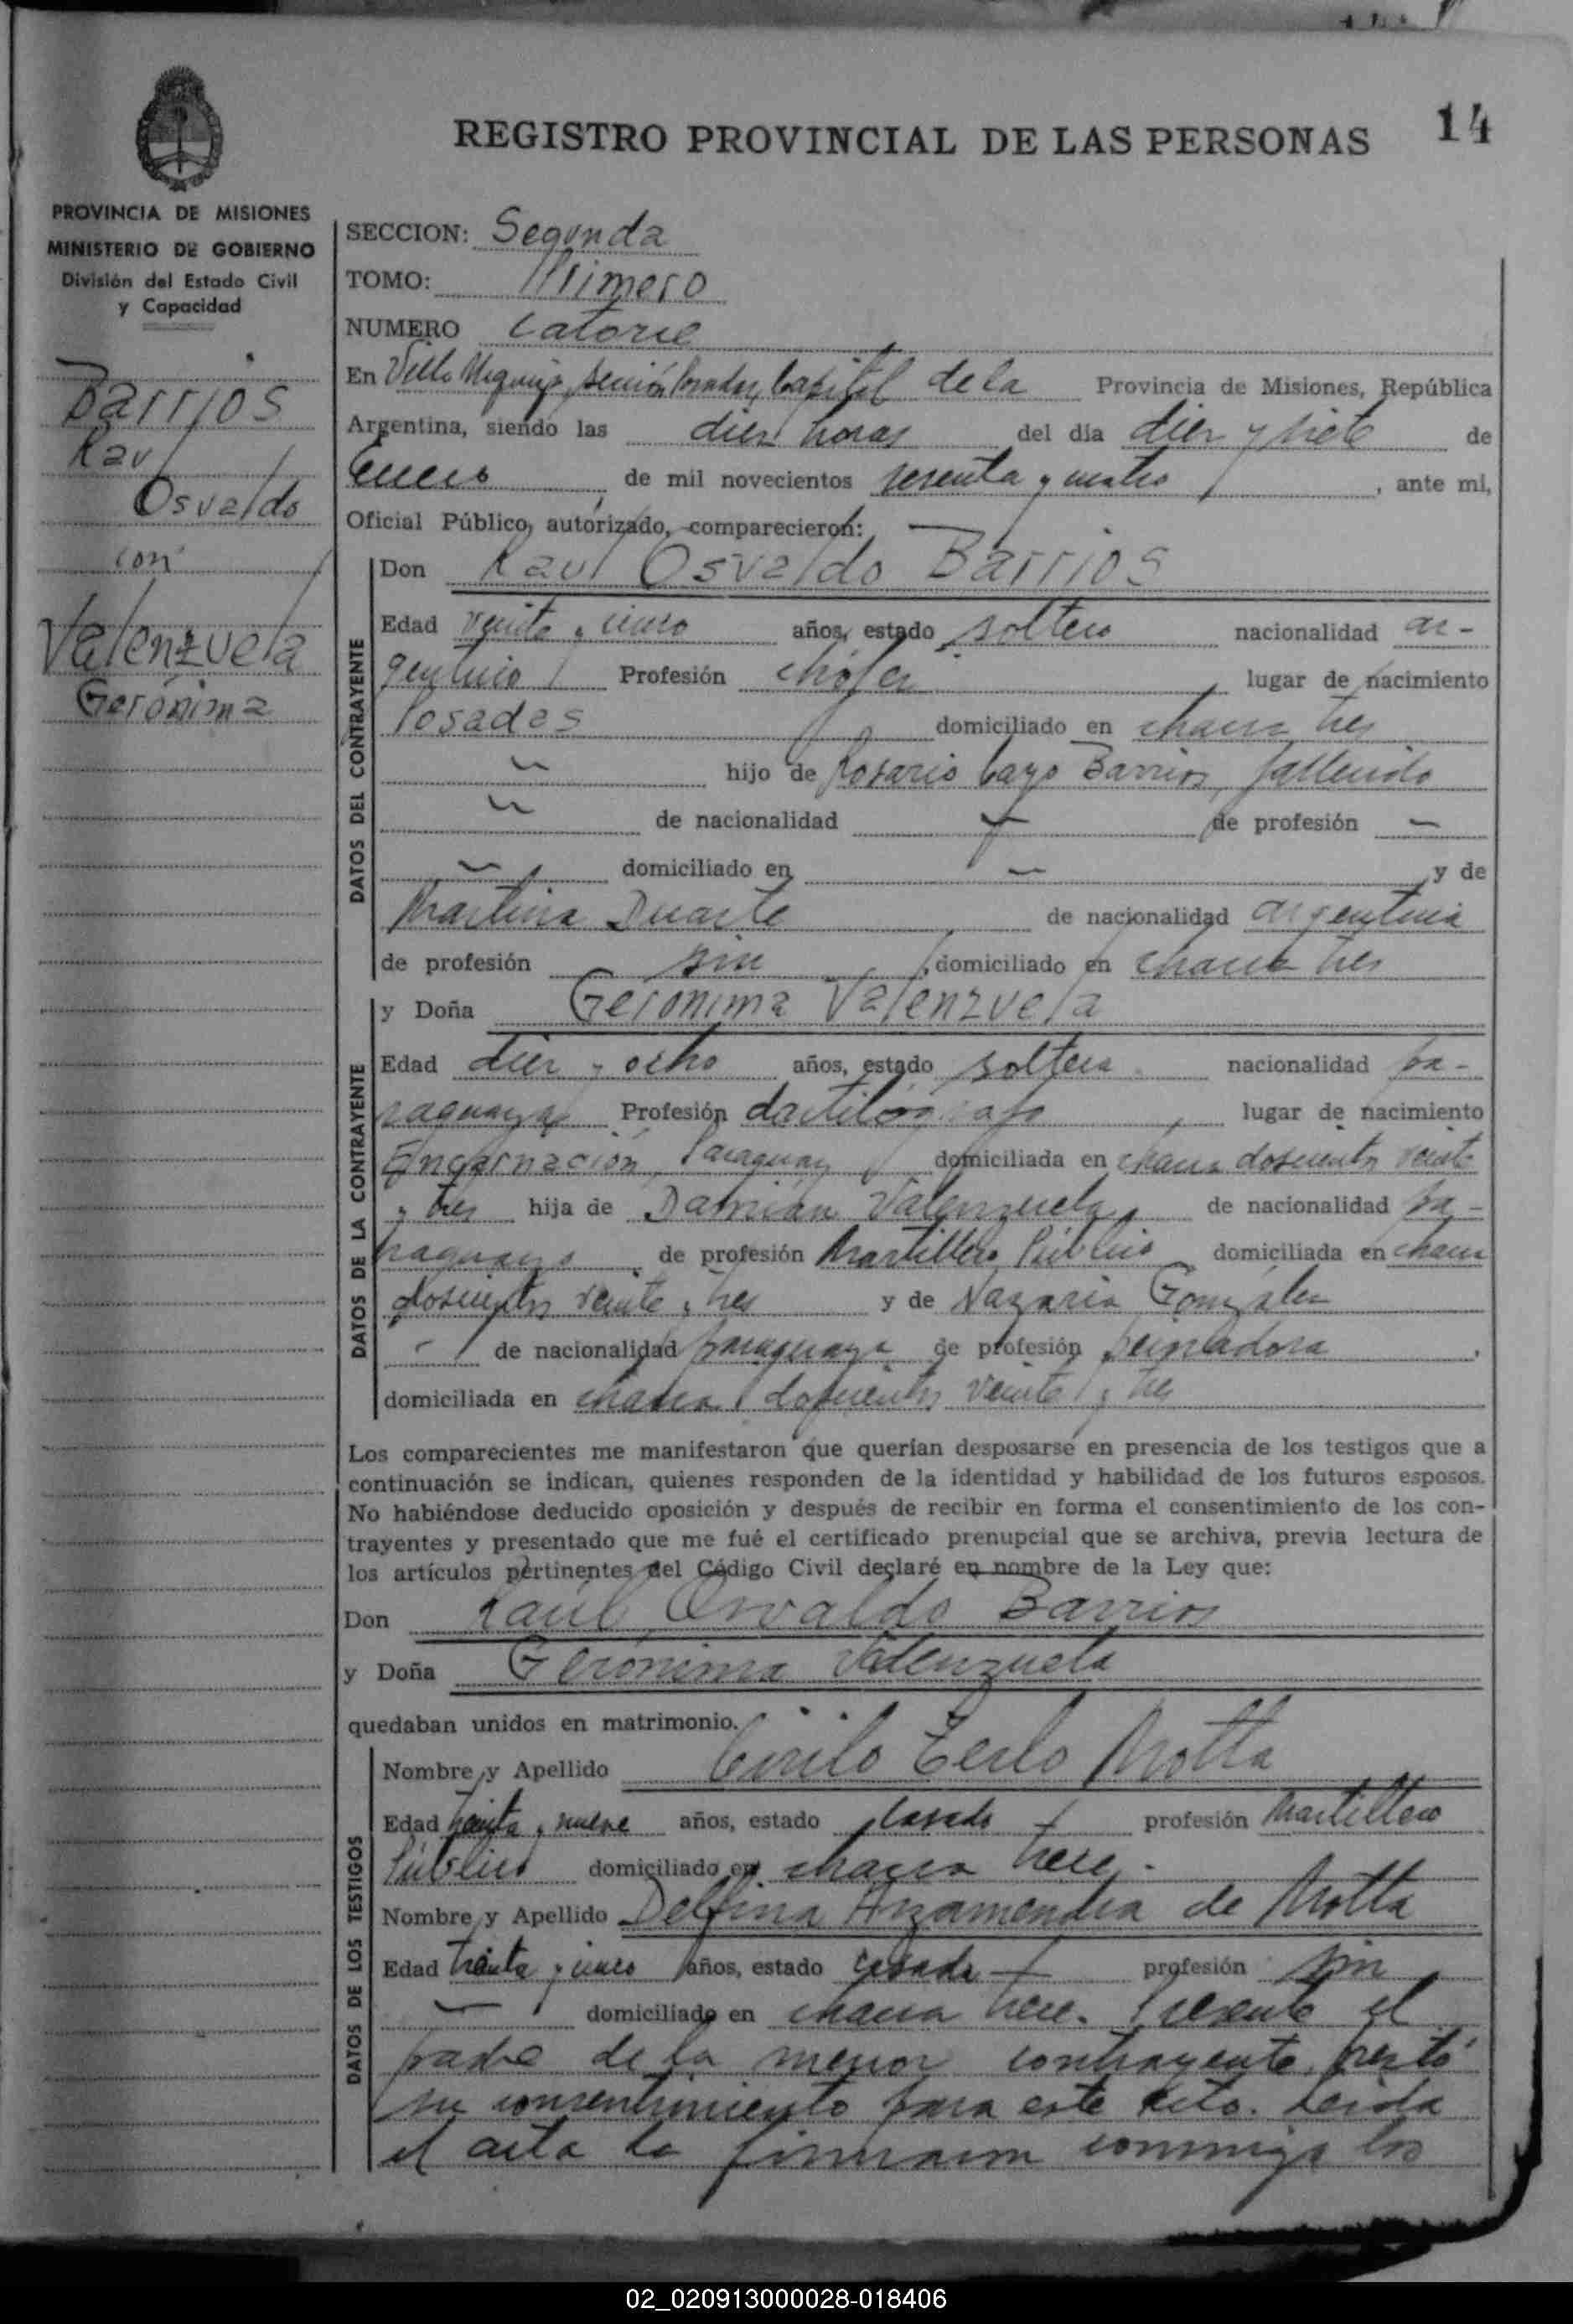 REGISTRO PROVINCIAL DE LAS PERSONAS 14
PROVINCIA DE MISIONES
MINISTERIO DE GOBIERNO
División del Estado Civil
y Capacidad
Barrios
Raul
Osvaldo
con
Valenzuela
Gerónima
SECCION: Segunda
TOMO: Primero
NUMERO catorce
En Villa Urquiza, sección Posadas, Capital de la Provincia de Misiones, República
Argentina, siendo las diez horas del día diez y siete de
Enero de mil novecientos sesenta y cuatro, ante mi,
Oficial Público, autorizado, comparecieron:
DATOS DEL CONTRAYENTE
Don Raul Osvaldo Barrios
Edad veinte y cinco años, estado soltero nacionalidad ar-
gentino Profesión chófer lugar de nacimiento
Posadas domiciliado en chacra tres
hijo de Rosario Cayo Barrios, fallecido
de nacionalidad — de profesión —
— domiciliado en — y de
Martina Duarte de nacionalidad argentina
de profesión sin domiciliado en chacra tres
DATOS DE LA CONTRAYENTE
y Doña Gerónima Valenzuela
Edad diez y ocho años, estado soltera nacionalidad pa-
raguaya Profesión dactilógrafa lugar de nacimiento
Encarnación, Paraguay domiciliada en chacra doscientos veinte
y tres hija de Damián Valenzuela, de nacionalidad pa-
raguayo de profesión Martillero Público domiciliada en chacra
doscientos veinte y tres y de Nazaria González
de nacionalidad paraguaya de profesión peinadora,
domiciliada en chacra doscientos veinte y tres
Los comparecientes me manifestaron que querían desposarse en presencia de los testigos que a
continuación se indican, quienes responden de la identidad y habilidad de los futuros esposos.
No habiéndose deducido oposición y después de recibir en forma el consentimiento de los con-
trayentes y presentado que me fué el certificado prenupcial que se archiva, previa lectura de
los artículos pertinentes del Código Civil declaré en nombre de la Ley que:
Don Raúl Osvaldo Barrios
y Doña Gerónima Valenzuela
quedaban unidos en matrimonio.
DATOS DE LOS TESTIGOS
Nombre y Apellido Cirilo Motta
Edad treinta y nueve años, estado casado profesión Martillero
Público domiciliado en chacra trece.
Nombre y Apellido Delfina Anzamendia de Motta
Edad treinta y cinco años, estado casada profesión sin
— domiciliado en chacra trece. Presente el
padre de la menor contrayente prestó
su consentimiento para este acto. Leida
el acta la firmaron conmigo los
02_020913000028-018406